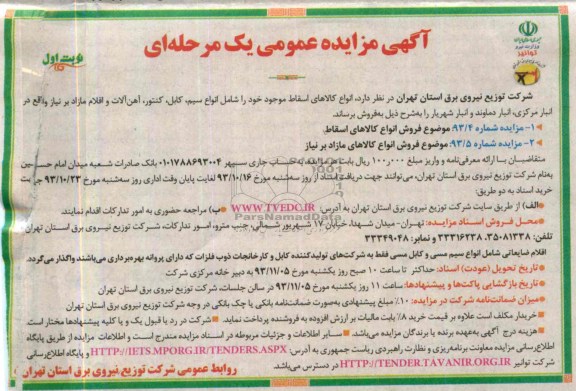 آگهی مزایده عمومی یک مرحله‌ای
نوبت اول
وزارت نیرو
توانیر
شرکت توزیع نیروی برق استان تهران در نظر دارد، انواع کالاهای اسقاط موجود خود را شامل انواع سیم، کابل، کنتور، آهن‌آلات و اقلام مازاد بر نیاز واقع در
انبار مرکزی، انبار دماوند و انبار شهریار را به‌شرح ذیل به‌فروش برساند.
۱- مزایده شماره ۹۳/۴: موضوع فروش انواع کالاهای اسقاط
۲- مزایده شماره ۹۳/۵: موضوع فروش انواع کالاهای مازاد بر نیاز
متقاضیان با ارائه معرفی‌نامه و واریز مبلغ ۱۰۰/۰۰۰ ریال بابت هر مزایده به‌حساب جاری سپهر ۰۱۰۱۷۸۸۶۹۳۰۰۴ بانک صادرات شعبه میدان امام حسین
به‌نام شرکت توزیع نیروی برق استان تهران، می‌توانند جهت دریافت اسناد از روز سه‌شنبه مورخ ۹۳/۱۰/۱۶ لغایت پایان وقت اداری روز سه‌شنبه مورخ ۹۳/۱۰/۲۳ جهت
خرید اسناد به دو طریق:
الف) از طریق سایت شرکت توزیع نیروی برق استان تهران به آدرس: WWW.TVEDC.IR ب) مراجعه حضوری به امور تدارکات اقدام نمایند.
محل فروش اسناد مزایده: تهران- میدان شهدا، خیابان ۱۷ شهریور شمالی، جنب مترو، امور تدارکات، شرکت توزیع نیروی برق استان تهران
تلفن: ۳۵۰۸۱۳۳۸، ۳۳۳۱۶۲۳۸ و نمابر: ۳۳۳۴۹۰۴۸
اقلام ضایعاتی شامل انواع سیم مسی و کابل مسی فقط به شرکت‌های تولیدکننده کابل و کارخانجات ذوب فلزات که دارای پروانه بهره‌برداری می‌باشند واگذار می‌گردد.
تاریخ تحویل (عودت) اسناد: حداکثر تا ساعت ۱۰ صبح روز یکشنبه مورخ ۹۳/۱۱/۰۵ به دبیرخانه مرکزی شرکت
تاریخ بازگشایی پاکت‌ها و پیشنهادها: ساعت ۱۱ روز یکشنبه مورخ ۹۳/۱۱/۰۵ در سالن جلسات، شرکت توزیع نیروی برق استان تهران
میزان ضمانت‌نامه شرکت در مزایده: ۱۰٪ مبلغ پیشنهادی به‌صورت ضمانت‌نامه بانکی یا چک بانکی در وجه شرکت توزیع نیروی برق استان تهران
خریدار مکلف است علاوه بر قیمت خرید ۸٪ بابت مالیات بر ارزش افزوده به فروشنده پرداخت نماید. شرکت در رد یا قبول یک و یا کلیه پیشنهادها مختار است
هزینه درج آگهی به‌عهده برنده یا برندگان مزایده می‌باشد. سایر اطلاعات و جزئیات مربوطه در اسناد مزایده مندرج است و اطلاعات مزایده از طریق پایگاه
اطلاع‌رسانی مزایده معاونت برنامه‌ریزی و نظارت راهبردی ریاست جمهوری به آدرس: HTTP://IETS.MPORG.IR/TENDERS.ASPX و پایگاه اطلاع‌رسانی
شرکت توانیر HTTP://TENDER.TAVANIR.ORG.IR در دسترس می‌باشد.
روابط عمومی شرکت توزیع نیروی برق استان تهران
ParsNamadData